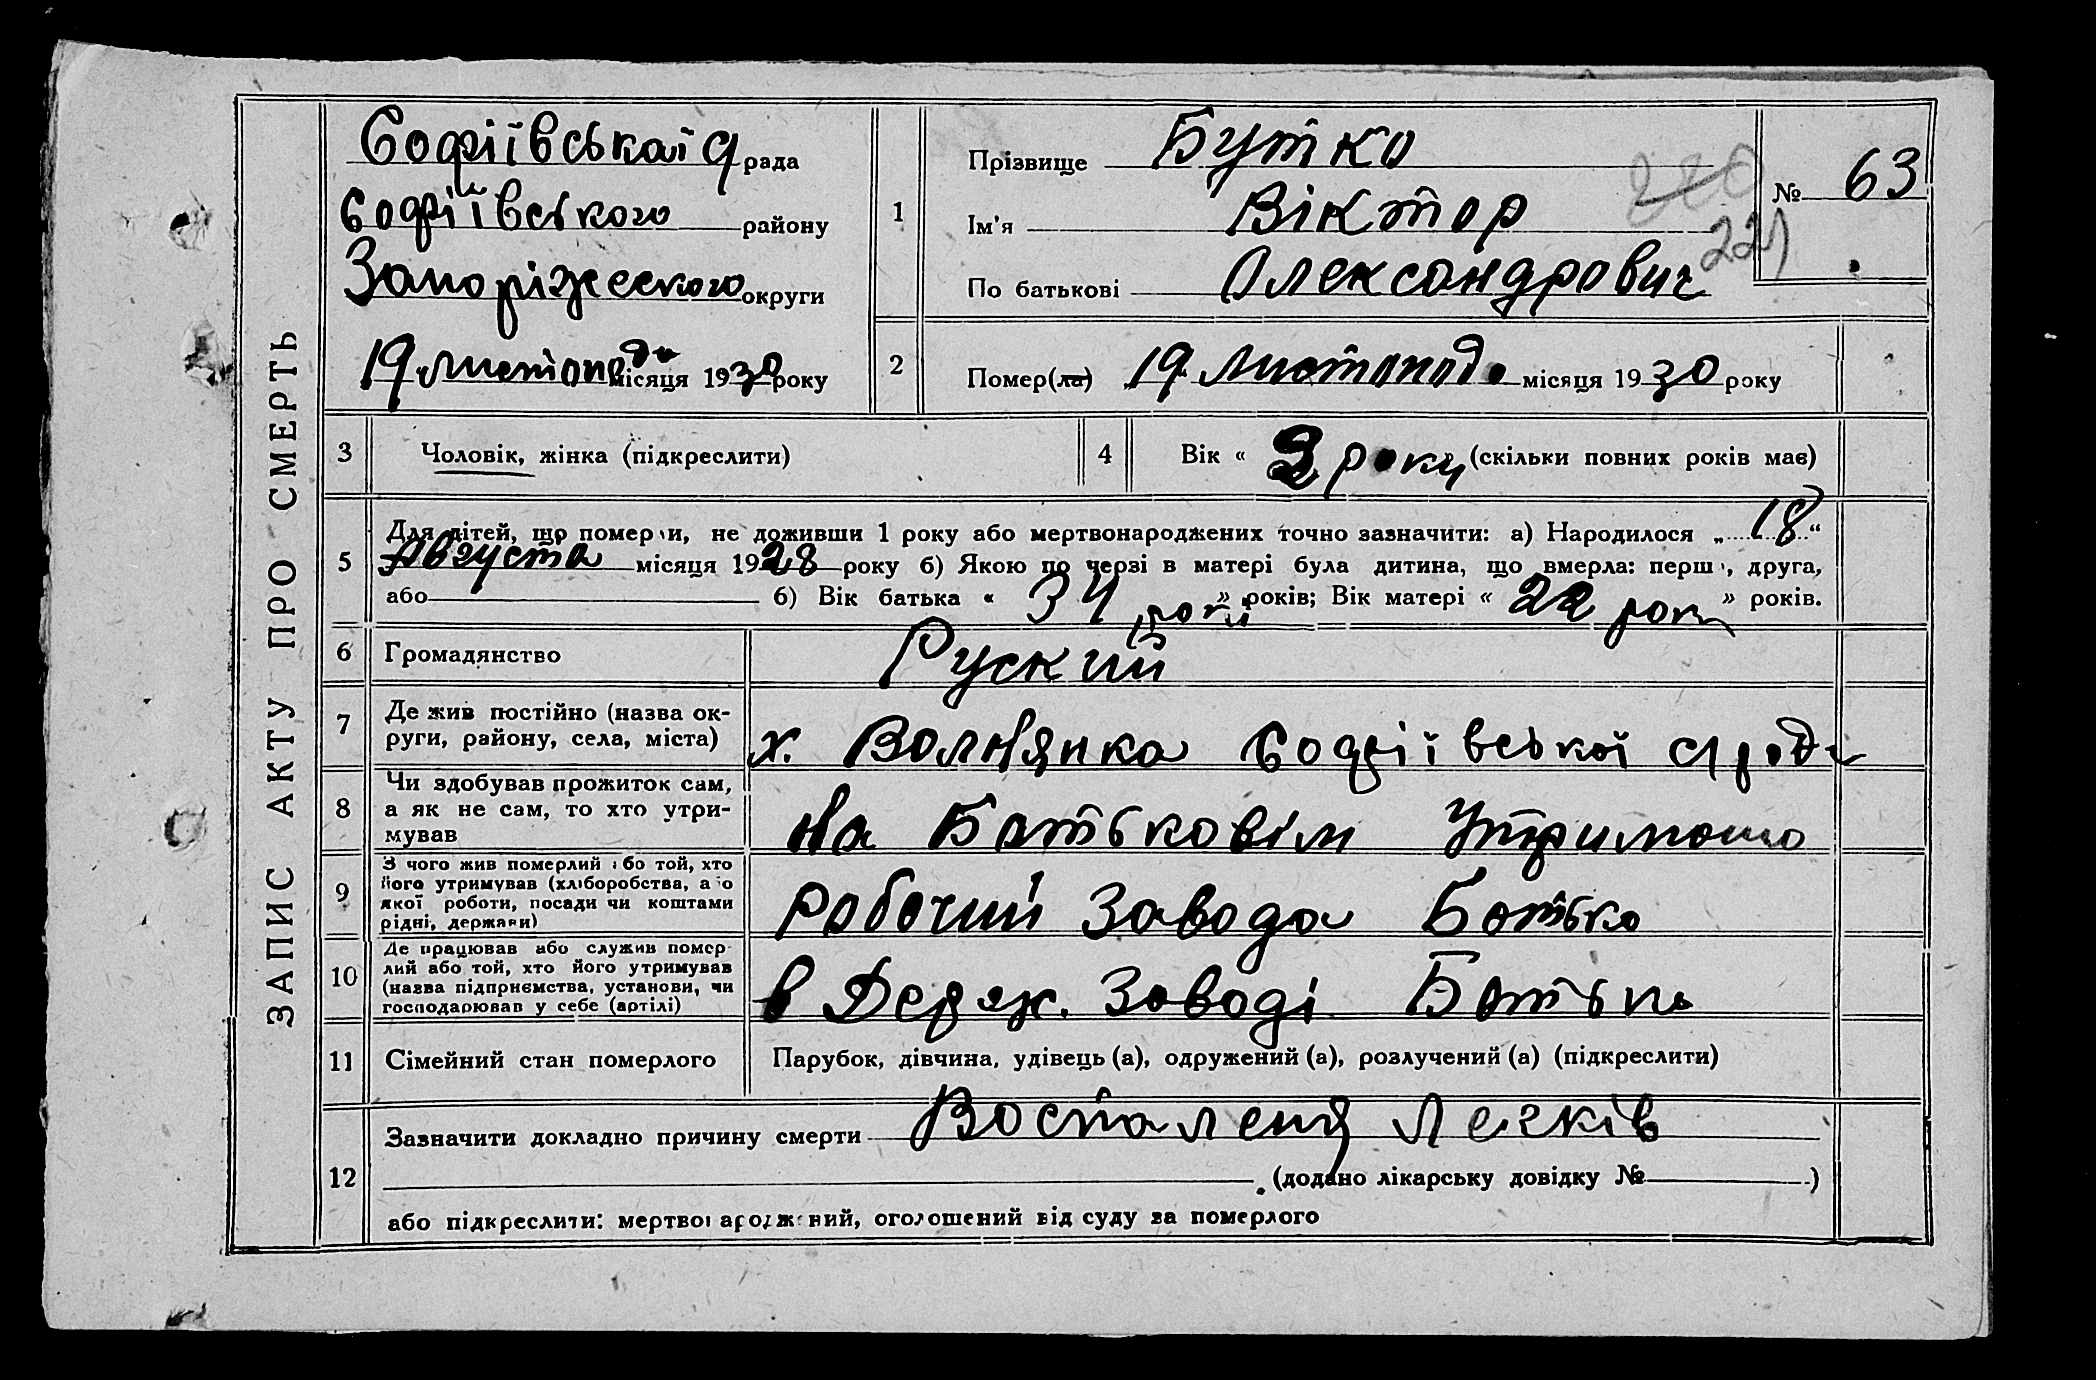 ЗАПИС АКТУ ПРО СМЕРТЬ
Софіївська рада
Софіївського району
Запоріжського округи
19 листопада місяця 1930 року
1
Прізвище Бутко
Ім'я Віктор
По батькові Олександрович
№ 63
220
221
2
Помер(ла) 19 листопада місяця 1930 року
3
Чоловік, жінка (підкреслити)
4
Вік « 2 роки (скільки повних років має)
5
Для дітей, що померли, не доживши 1 року або мертвонароджених точно зазначити: а) Народилося „ 18 “
Августа місяця 1928 року б) Якою по черзі в матері була дитина, що вмерла: перша, друга,
або б) Вік батька « 34 роки » років; Вік матері « 22 роки » років.
6
Громадянство
Руский
7
Де жив постійно (назва ок-
руги, району, села, міста)
х. Волнянка Софіївської с/ради
8
Чи здобував прожиток сам,
а як не сам, то хто утри-
мував
На Батьковім
9
З чого жив померлий або той, хто
його утримував (хліборобства, або
якої роботи, посади чи коштами
рідні, держави)
Рабочий Завода Батько
10
Де працював або служив помер-
лий або той, хто його утримував
(назва підприємства, установи, чи
господарював у себе (артілі)
в Держ. Заводі Батько
11
Сімейний стан померлого
Парубок, дівчина, удівець (а), одружений (а), розлучений (а) (підкреслити)
12
Зазначити докладно причину смерти Воспаленя Легків
(додано лікарську довідку № )
або підкреслити: мертвонароджений, оголошений від суду за померлого